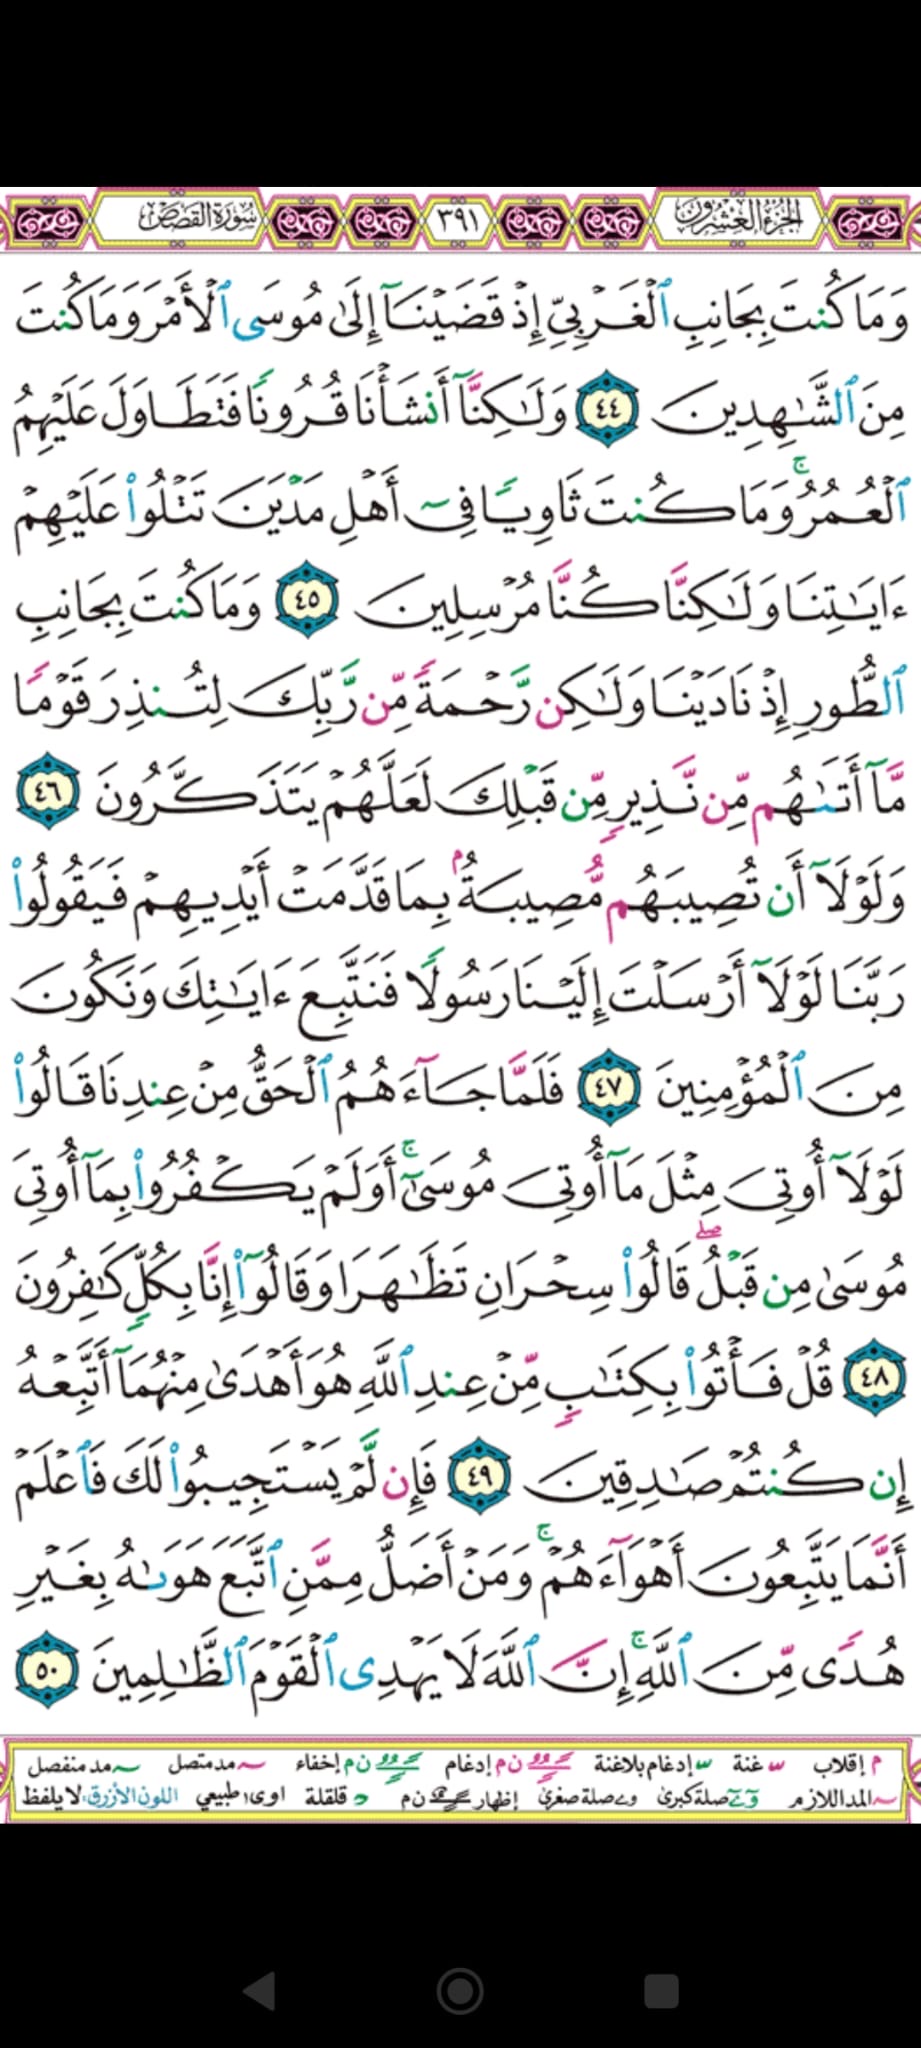 الجزء العشرون ٣٩١ سورة القصص
وَمَا كُنتَ بِجَانِبِ ٱلْغَرْبِيِّ إِذْ قَضَيْنَآ إِلَىٰ مُوسَى ٱلْأَمْرَ وَمَا كُنتَ
مِنَ ٱلشَّٰهِدِينَ ٤٤ وَلَٰكِنَّآ أَنشَأْنَا قُرُونًا فَتَطَاوَلَ عَلَيْهِمُ
ٱلْعُمُرُ ۚ وَمَا كُنتَ ثَاوِيًا فِىٓ أَهْلِ مَدْيَنَ تَتْلُوا۟ عَلَيْهِمْ
ءَايَٰتِنَا وَلَٰكِنَّا كُنَّا مُرْسِلِينَ ٤٥ وَمَا كُنتَ بِجَانِبِ
ٱلطُّورِ إِذْ نَادَيْنَا وَلَٰكِن رَّحْمَةً مِّن رَّبِّكَ لِتُنذِرَ قَوْمًا
مَّآ أَتَىٰهُم مِّن نَّذِيرٍ مِّن قَبْلِكَ لَعَلَّهُمْ يَتَذَكَّرُونَ ٤٦
وَلَوْلَآ أَن تُصِيبَهُم مُّصِيبَةٌۢ بِمَا قَدَّمَتْ أَيْدِيهِمْ فَيَقُولُوا۟
رَبَّنَا لَوْلَآ أَرْسَلْتَ إِلَيْنَا رَسُولًا فَنَتَّبِعَ ءَايَٰتِكَ وَنَكُونَ
مِنَ ٱلْمُؤْمِنِينَ ٤٧ فَلَمَّا جَآءَهُمُ ٱلْحَقُّ مِنْ عِندِنَا قَالُوا۟
لَوْلَآ أُوتِىَ مِثْلَ مَآ أُوتِىَ مُوسَىٰٓ ۚ أَوَلَمْ يَكْفُرُوا۟ بِمَآ أُوتِىَ
مُوسَىٰ مِن قَبْلُ ۖ قَالُوا۟ سِحْرَانِ تَظَٰهَرَا وَقَالُوٓا۟ إِنَّا بِكُلٍّ كَٰفِرُونَ
٤٨ قُلْ فَأْتُوا۟ بِكِتَٰبٍ مِّنْ عِندِ ٱللَّهِ هُوَ أَهْدَىٰ مِنْهُمَآ أَتَّبِعْهُ
إِن كُنتُمْ صَٰدِقِينَ ٤٩ فَإِن لَّمْ يَسْتَجِيبُوا۟ لَكَ فَٱعْلَمْ
أَنَّمَا يَتَّبِعُونَ أَهْوَآءَهُمْ ۚ وَمَنْ أَضَلُّ مِمَّنِ ٱتَّبَعَ هَوَىٰهُ بِغَيْرِ
هُدًى مِّنَ ٱللَّهِ ۚ إِنَّ ٱللَّهَ لَا يَهْدِى ٱلْقَوْمَ ٱلظَّٰلِمِينَ ٥٠
م إقلاب غنة إدغام بلاغنة ن م إدغام ن م إخفاء مد متصل مد منفصل
المد اللازم صلة كبرى صلة صغرى إظهار ن م قلقلة اوى طبيعي اللون الأزرق: لا يلفظ